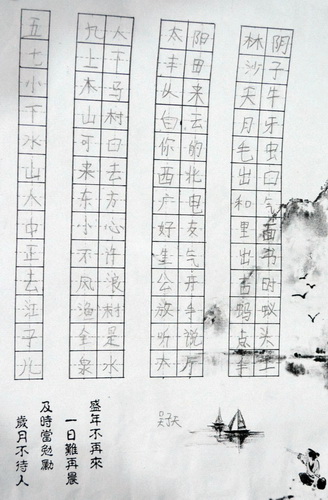 五 九人 太阳 林阴
七 上下 丰田 沙子
小 木马 从来 天牛
下 山村 白云 月牙
水 可白 你的 毛虫
山 来去 西北 出口
人 东方 广电 和气
中 小心 好友 里面
正 不许 生气 出书
去 风浪 公开 古时
江 渔村 放手 蚂蚁
子 全是 听说 点头
儿 泉水 大厅
盛年不再來
一日難再晨
及時當勉勵
歲月不待人